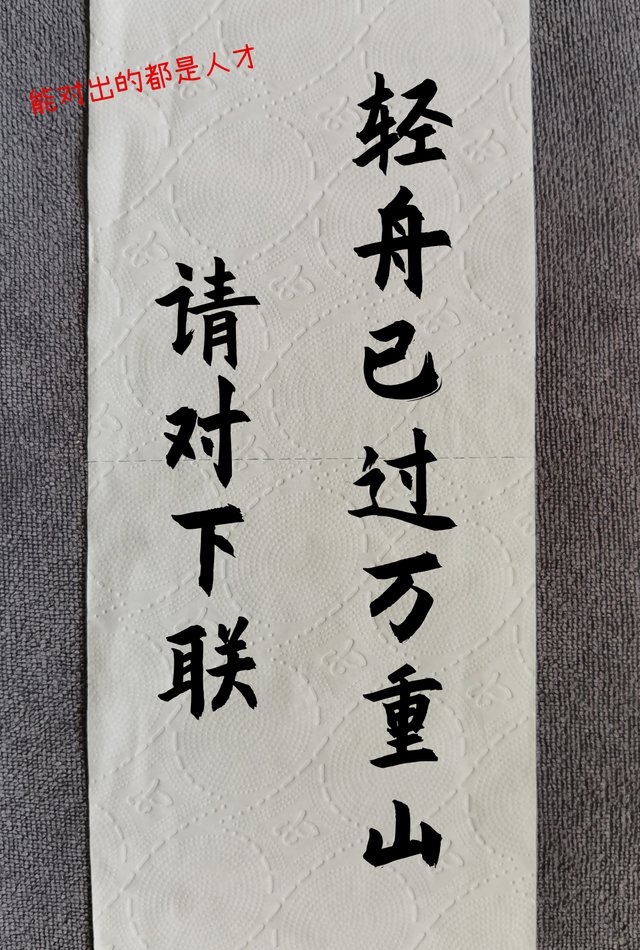 能对出的都是人才
轻舟已过万重山
请对下联